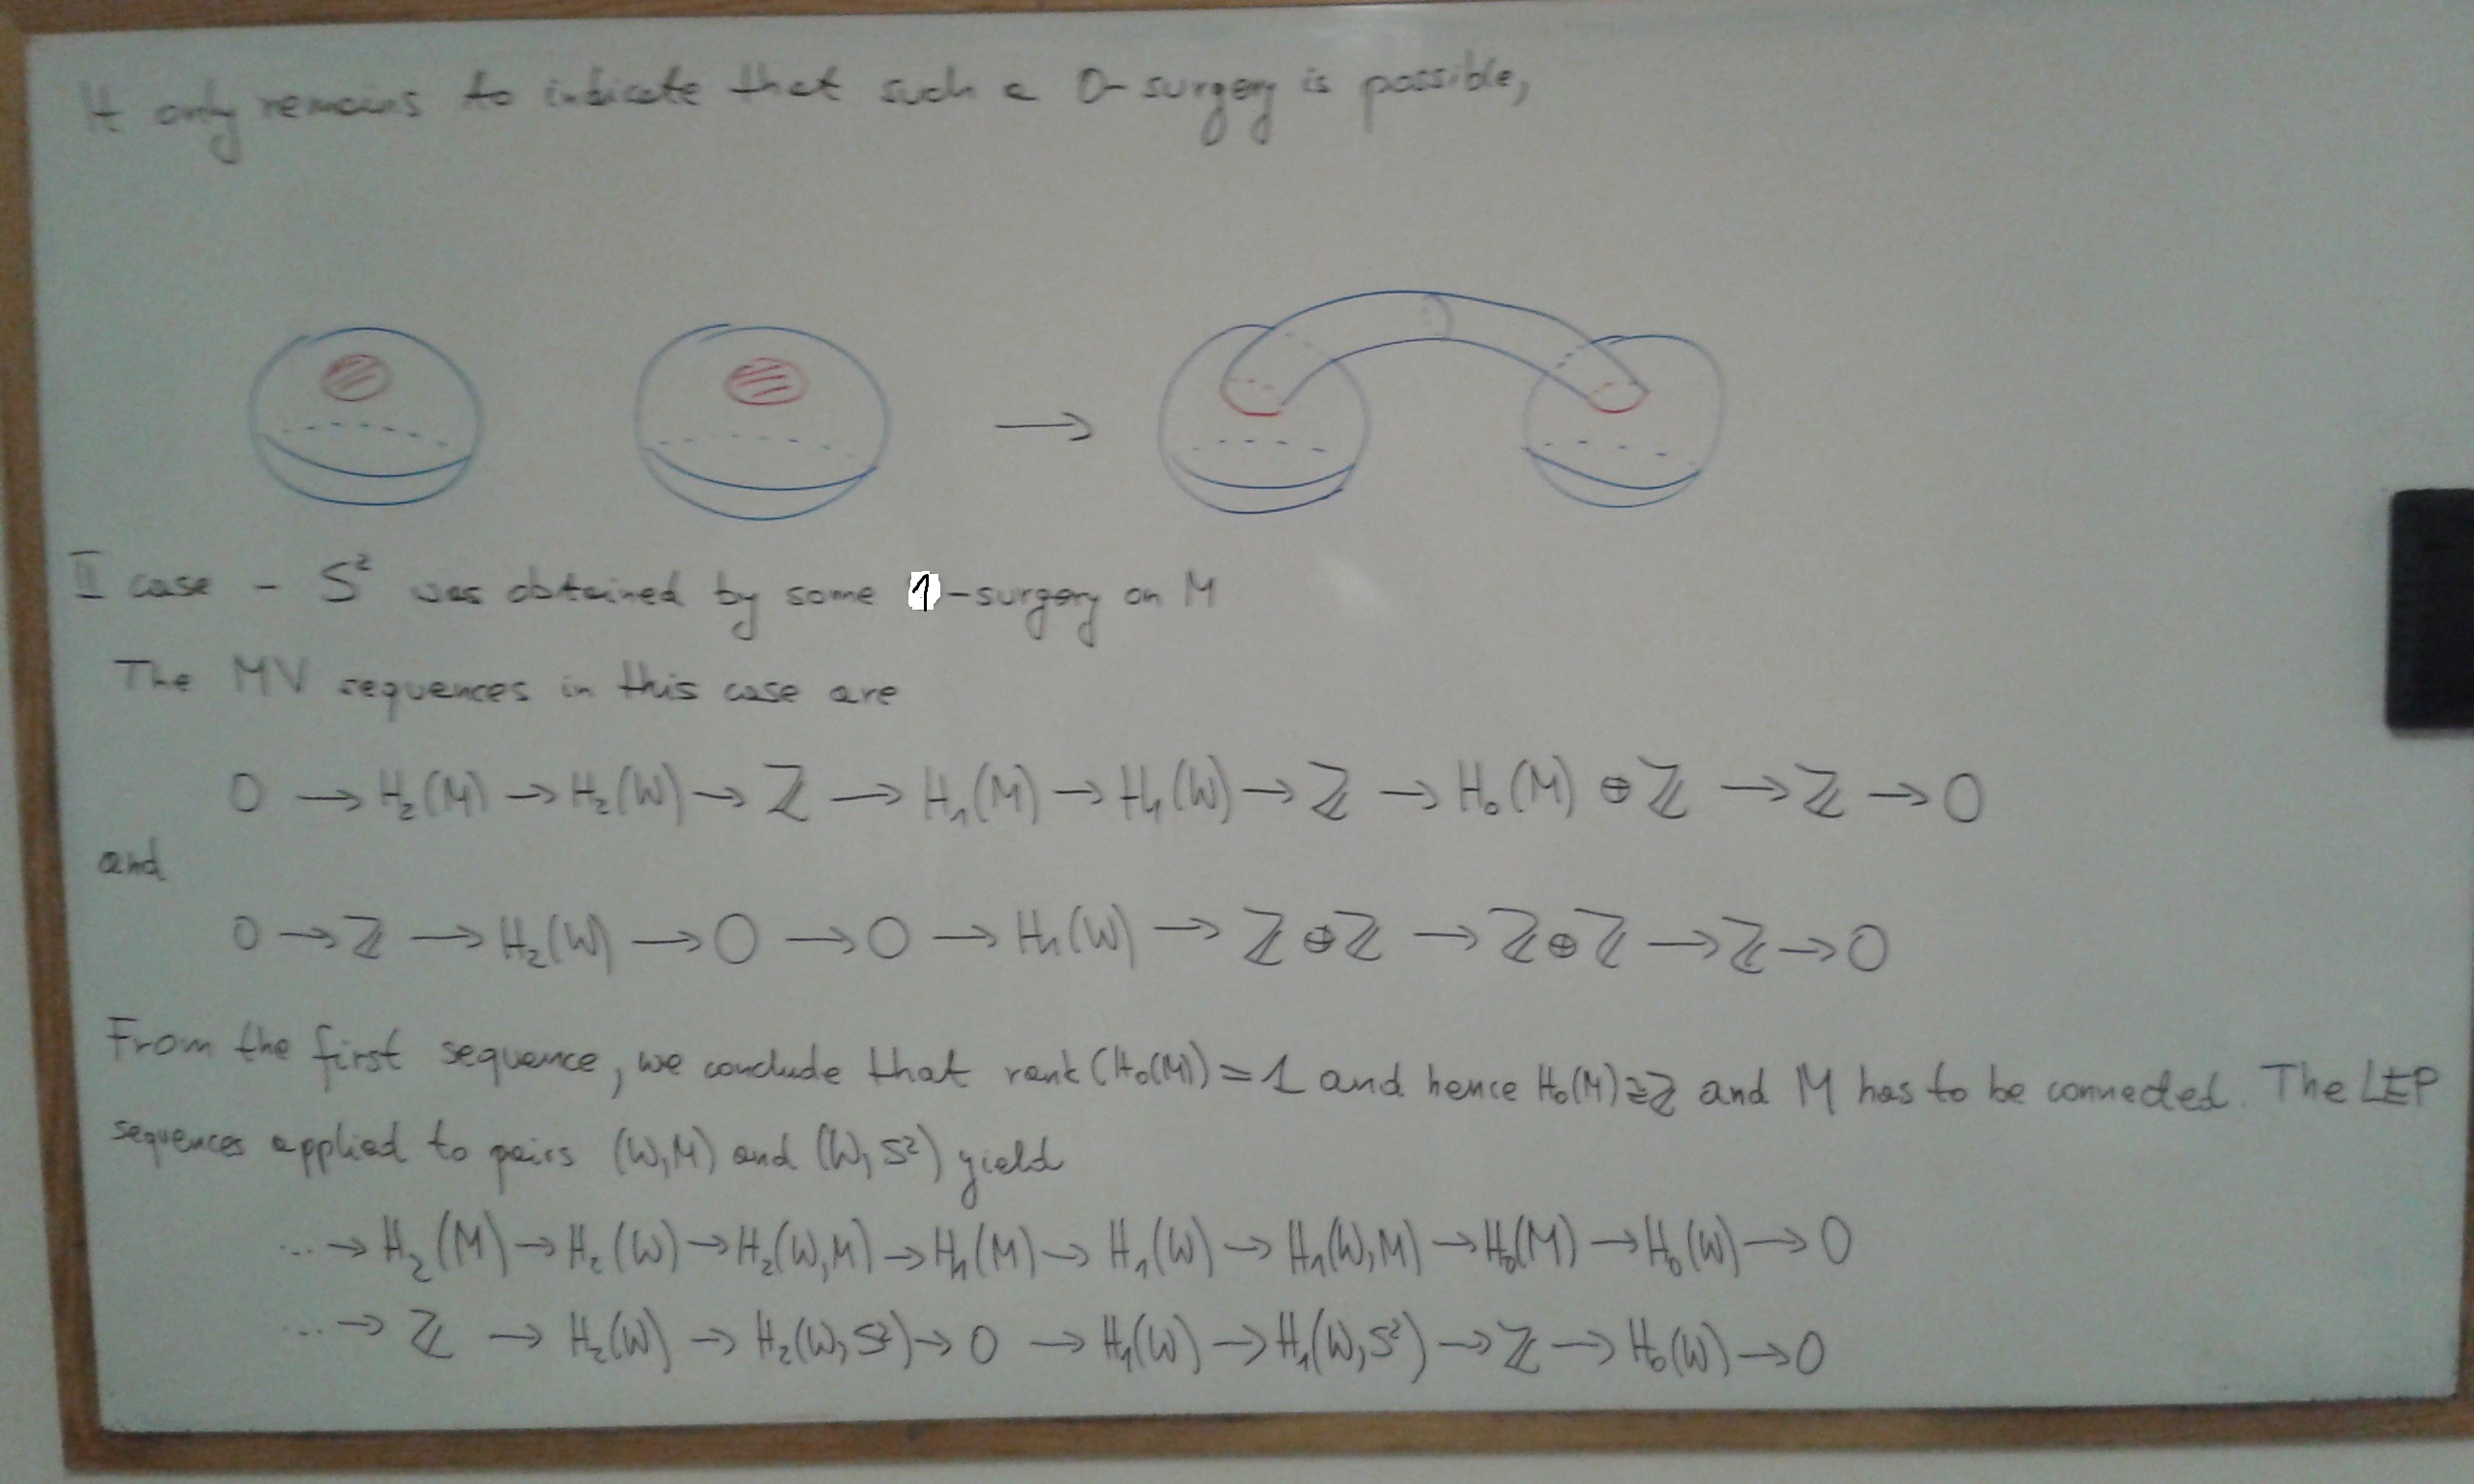 It only remains to indicate that such a 0-surgery is possible,
II case - S² was obtained by some 1-surgery on M
The MV sequences in this case are
0 → H₂(M) → H₂(W) → ℤ → H₁(M) → H₁(W) → ℤ → H₀(M) ⊕ ℤ → ℤ → 0
and
0 → ℤ → H₂(W) → 0 → 0 → H₁(W) → ℤ ⊕ ℤ → ℤ ⊕ ℤ → ℤ → 0
From the first sequence, we conclude that rank(H₀(M)) = 1 and hence H₀(M) ≅ ℤ and M has to be connected. The LEP
sequences applied to pairs (W,M) and (W,S²) yield
... → H₂(M) → H₂(W) → H₂(W,M) → H₁(M) → H₁(W) → H₁(W,M) → H₀(M) → H₀(W) → 0
... → ℤ → H₂(W) → H₂(W,S²) → 0 → H₁(W) → H₁(W,S²) → ℤ → H₀(W) → 0